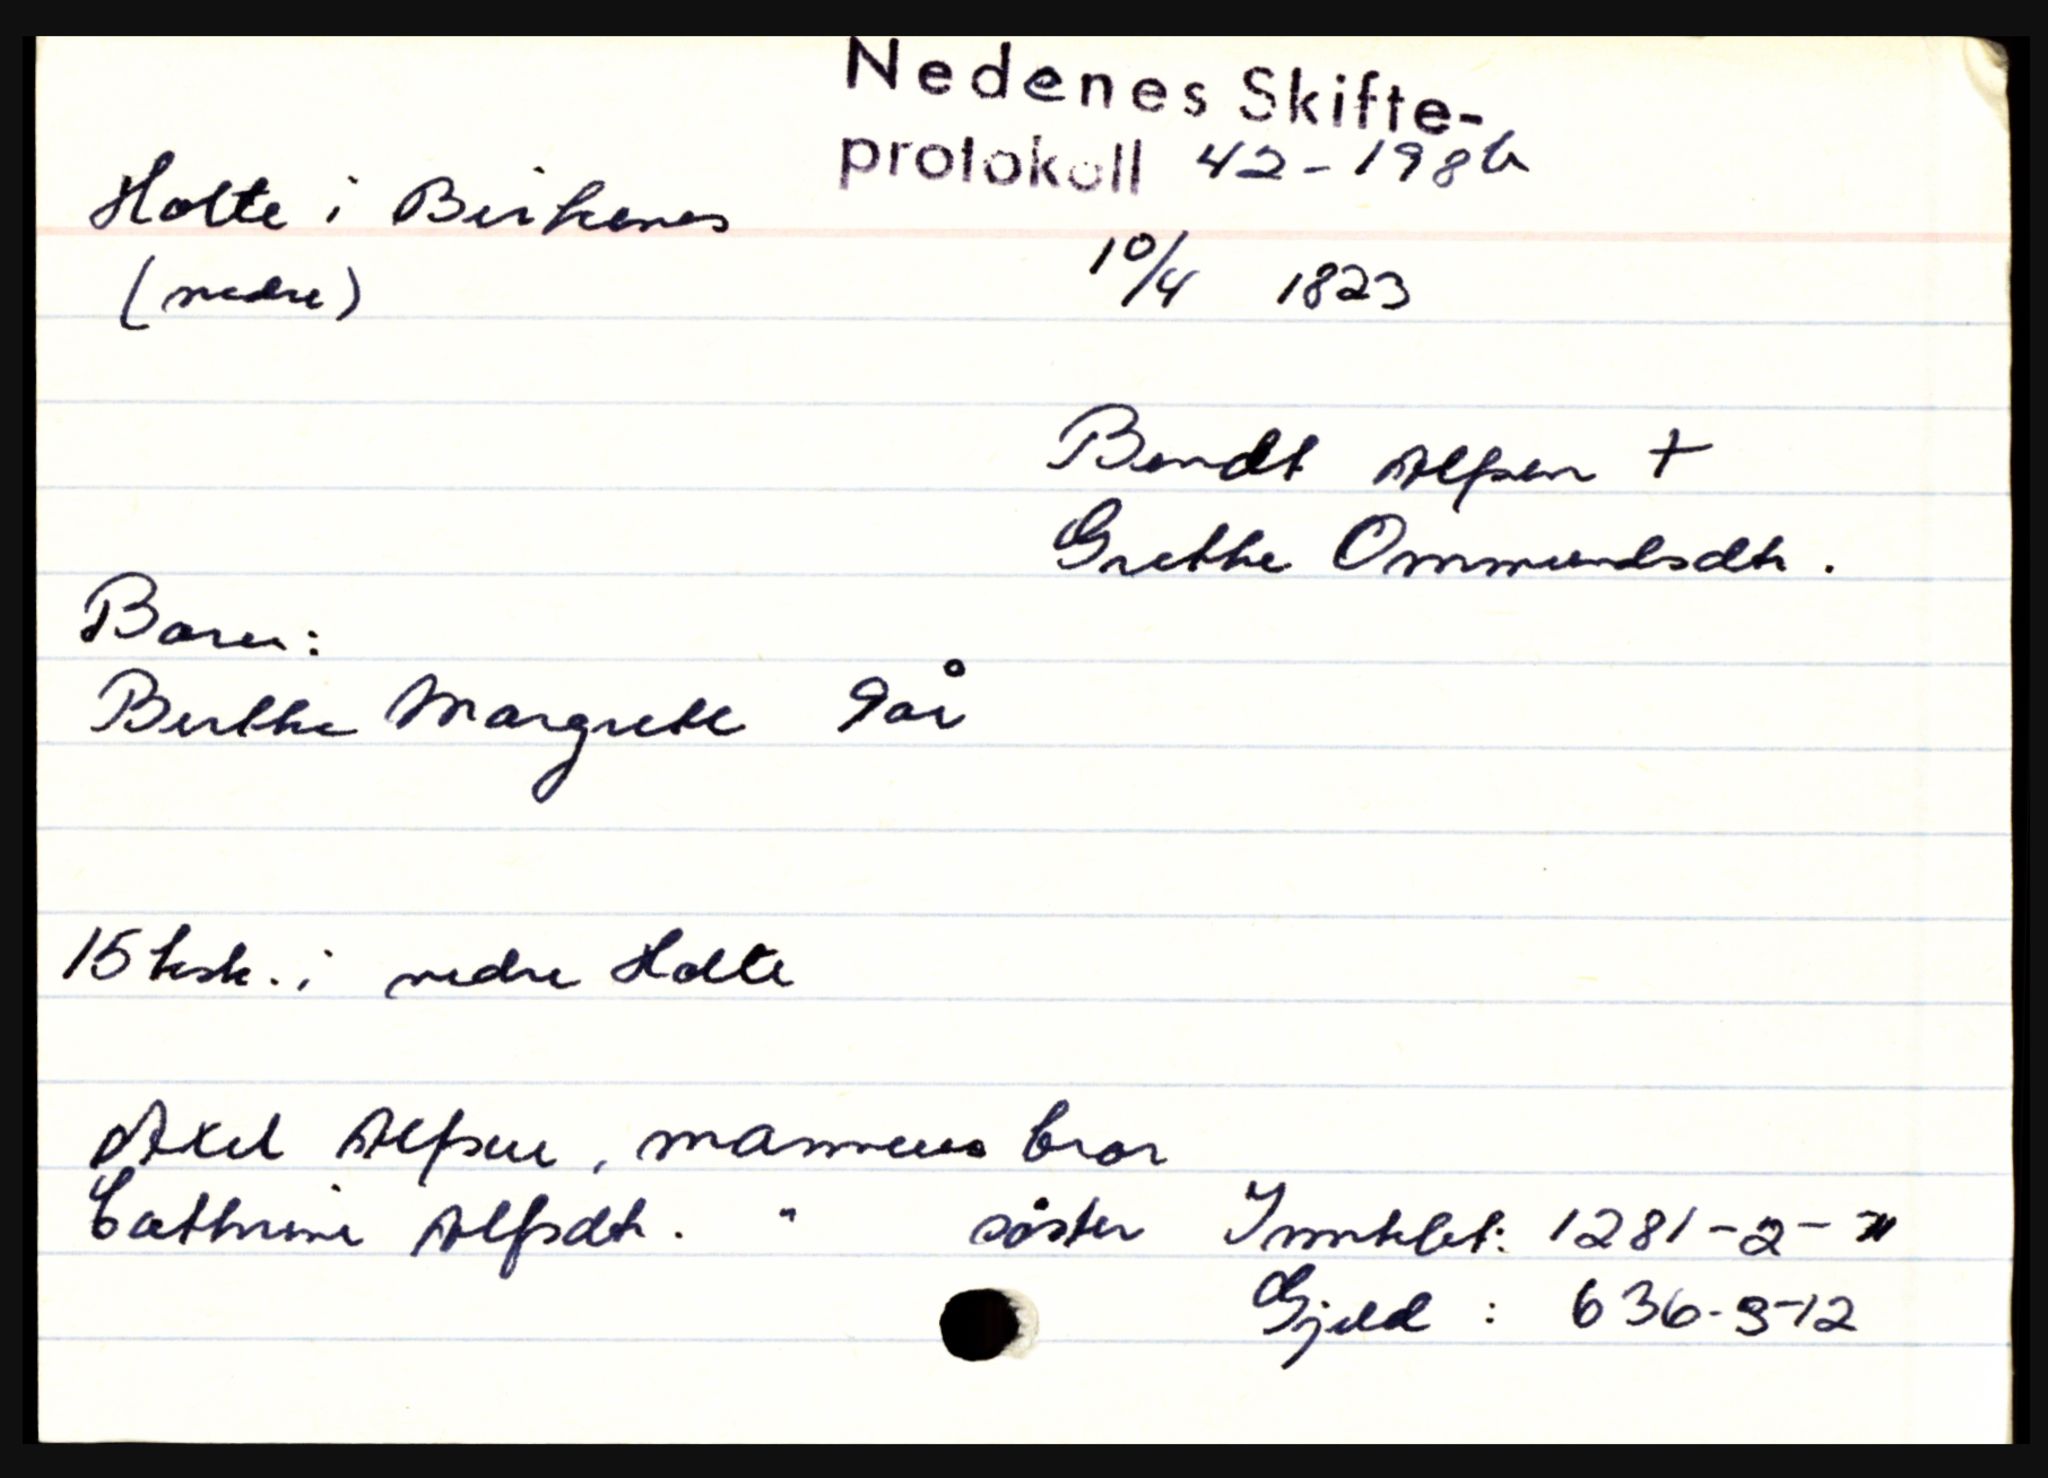 Nedenes Skifte-
protokoll 42-198b
Holte i Birkenes
(nedre)
10/4 1823
Bendt Alfsen +
Grethe Ommundsdtr.
Barn:
Berthe Margrete 9 år
15 ksk. i nedre Holte
Axel Alfsen, mannens bror
Cathrine Alfsdtr. " söster
Inntekt: 1281-2-"
Gjeld : 636-3-12